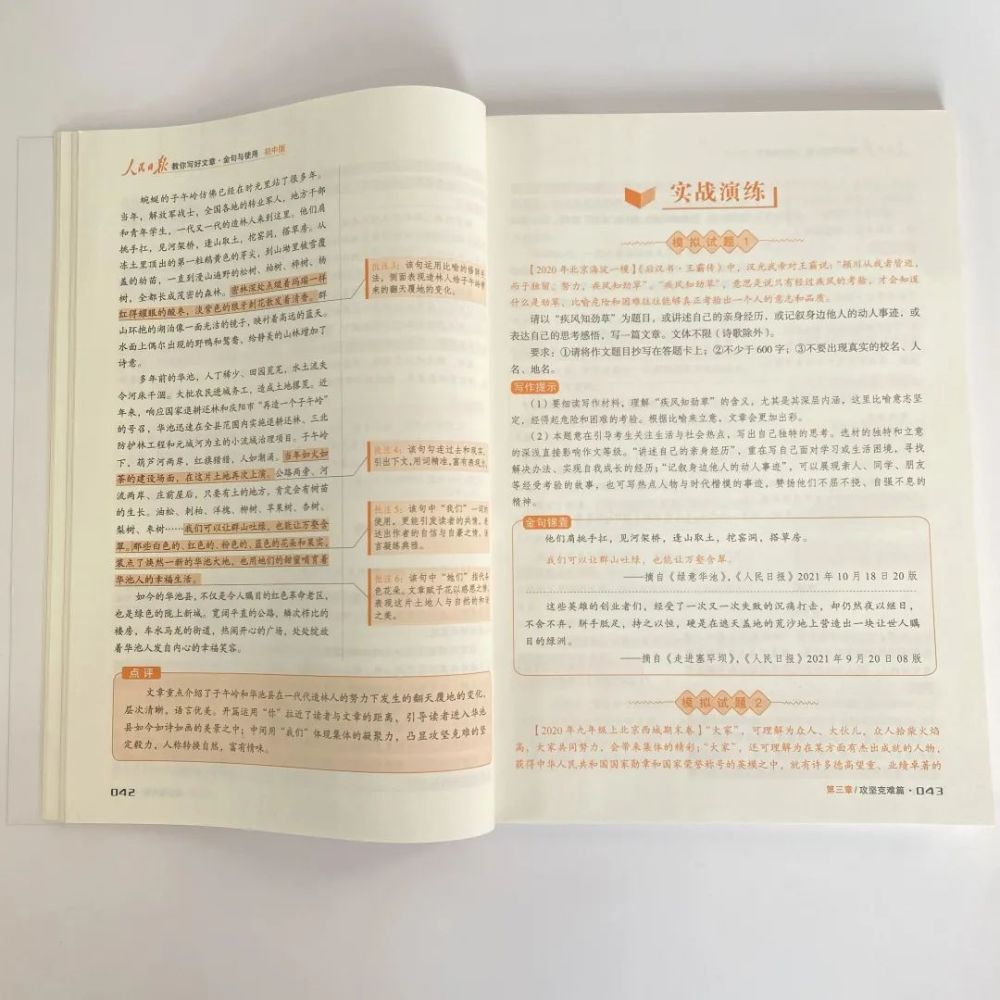 人民日报 教你写好文章·金句与使用 初中版
蜿蜒的子午岭仿佛已经在时光里站了很多年。
当年，解放军战士，全国各地的转业军人，地方干部
和青年学生，一代又一代的造林人来到这里。他们肩
挑手扛，见河架桥，逢山取土，挖窑洞，搭草房。从
冻土里顶出的第一粒鹅黄色的芽尖，到山坳里被雪覆
盖的幼苗，一直到漫山遍野的松树、柏树、桦树、杨
树，全都长成茂密的森林。密林深处点缀着玛瑙一样
红得耀眼的酸枣，淡紫色的狼牙刺花散发着清香。群
山环抱的湖泊像一面光洁的镜子，映衬着高远的蓝天。
水面上偶尔出现的野鸭和鸳鸯，给静美的山林增加了
诗意。
多年前的华池，人丁稀少、田园荒芜，水土流失
令河床干涸。大批农民进城务工，造成土地撂荒。近
年来，响应国家退耕还林和庆阳市“再造一个子午岭”
的号召，华池迅速在全县范围内实施退耕还林、三北
防护林工程和元城河为主的小流域治理项目。子午岭
下，葫芦河两岸，红旗猎猎，人如潮涌。当年如火如
荼的建设场面，在这片土地再次上演。公路两旁、河
流两岸、庄前屋后，只要有土的地方，肯定会有树苗
的生长。油松、刺柏、洋槐、柳树、苹果树、杏树、
梨树、枣树……我们可以让群山吐绿，也能让万壑含
翠。那些白色的、红色的、粉色的、蓝色的花朵和果实，
装点了焕然一新的华池大地，也用她们的甜蜜哺育着
华池人的幸福生活。
如今的华池县，不仅是令人瞩目的红色革命老区，
也是绿色的陇上新城。宽阔平直的公路，鳞次栉比的
楼房，车水马龙的街道，热闹开心的广场，处处绽放
着华池人发自内心的幸福笑容。
批注3：该句运用比喻的修辞手
法，侧面表现造林人给子午岭带
来的翻天覆地的变化。
批注4：该句勾连过去和现实，
引出下文，用词精准，富有表现力
批注5：该句中“我们”一词的
使用，更能引发读者的共情，表
达出作者的自信与自豪之情，语
言凝练典雅。
批注6：该句中“她们”指代各
色花朵。文章赋予花以感恩之情，
表现这片土地人与自然的和谐
之美。
点评
文章重点介绍了子午岭和华池县在一代代造林人的努力下发生的翻天覆地的变化，
层次清晰，语言优美。开篇运用“你”拉近了读者与文章的距离，引导读者进入华池
县如今如诗如画的美景之中；中间用“我们”体现集体的凝聚力，凸显攻坚克难的坚
定毅力，人称转换自然，富有情味。
042
实战演练
模拟试题1
【2020年北京海淀一模】《后汉书·王霸传》中，汉光武帝对王霸说：“颍川从我者皆逝，
而子独留。努力，疾风知劲草”。“疾风知劲草”，意思是说只有经过疾风的考验，才会知道
什么是劲草，比喻危险和困难往往能够真正考验出一个人的意志和品质。
请以“疾风知劲草”为题目，或讲述自己的亲身经历，或记叙身边他人的动人事迹，或
表达自己的思考感悟，写一篇文章。文体不限（诗歌除外）。
要求：①请将作文题目抄写在答题卡上；②不少于600字；③不要出现真实的校名、人
名、地名。
写作提示
（1）要细读写作材料，理解“疾风知劲草”的含义，尤其是其深层内涵，这里比喻意志坚
定，经得起危险和困难的考验。根据比喻来立意，文章会更加出彩。
（2）本题意在引导考生关注生活与社会热点，写出自己独特的思考。选材的独特和立意
的深浅直接影响作文等级。“讲述自己的亲身经历”，重在写自己面对学习或生活困境，寻找
解决办法、实现自我成长的经历；“记叙身边他人的动人事迹”，可以展现亲人、同学、朋友
等经受考验的故事，也可写热点人物与时代楷模的事迹，赞扬他们不屈不挠、自强不息的
精神。
金句锦囊
他们肩挑手扛，见河架桥，逢山取土，挖窑洞，搭草房。
我们可以让群山吐绿，也能让万壑含翠。
——摘自《绿意华池》，《人民日报》2021年10月18日20版
这些英雄的创业者们，经受了一次又一次失败的沉痛打击，却仍然夜以继日，
不舍不弃，胼手胝足，持之以恒，硬是在遮天盖地的荒沙地上营造出一块让世人瞩
目的绿洲。
——摘自《走进塞罕坝》，《人民日报》2021年9月20日08版
模拟试题2
【2020年九年级上北京西城期末卷】“大家”，可理解为众人、大伙儿，众人拾柴火焰
高，大家共同努力，会带来集体的精彩；“大家”，还可理解为在某方面有杰出成就的人物，
获得中华人民共和国国家勋章和国家荣誉称号的英模之中，就有许多德高望重、业绩卓著的
第三章/攻坚克难篇·043